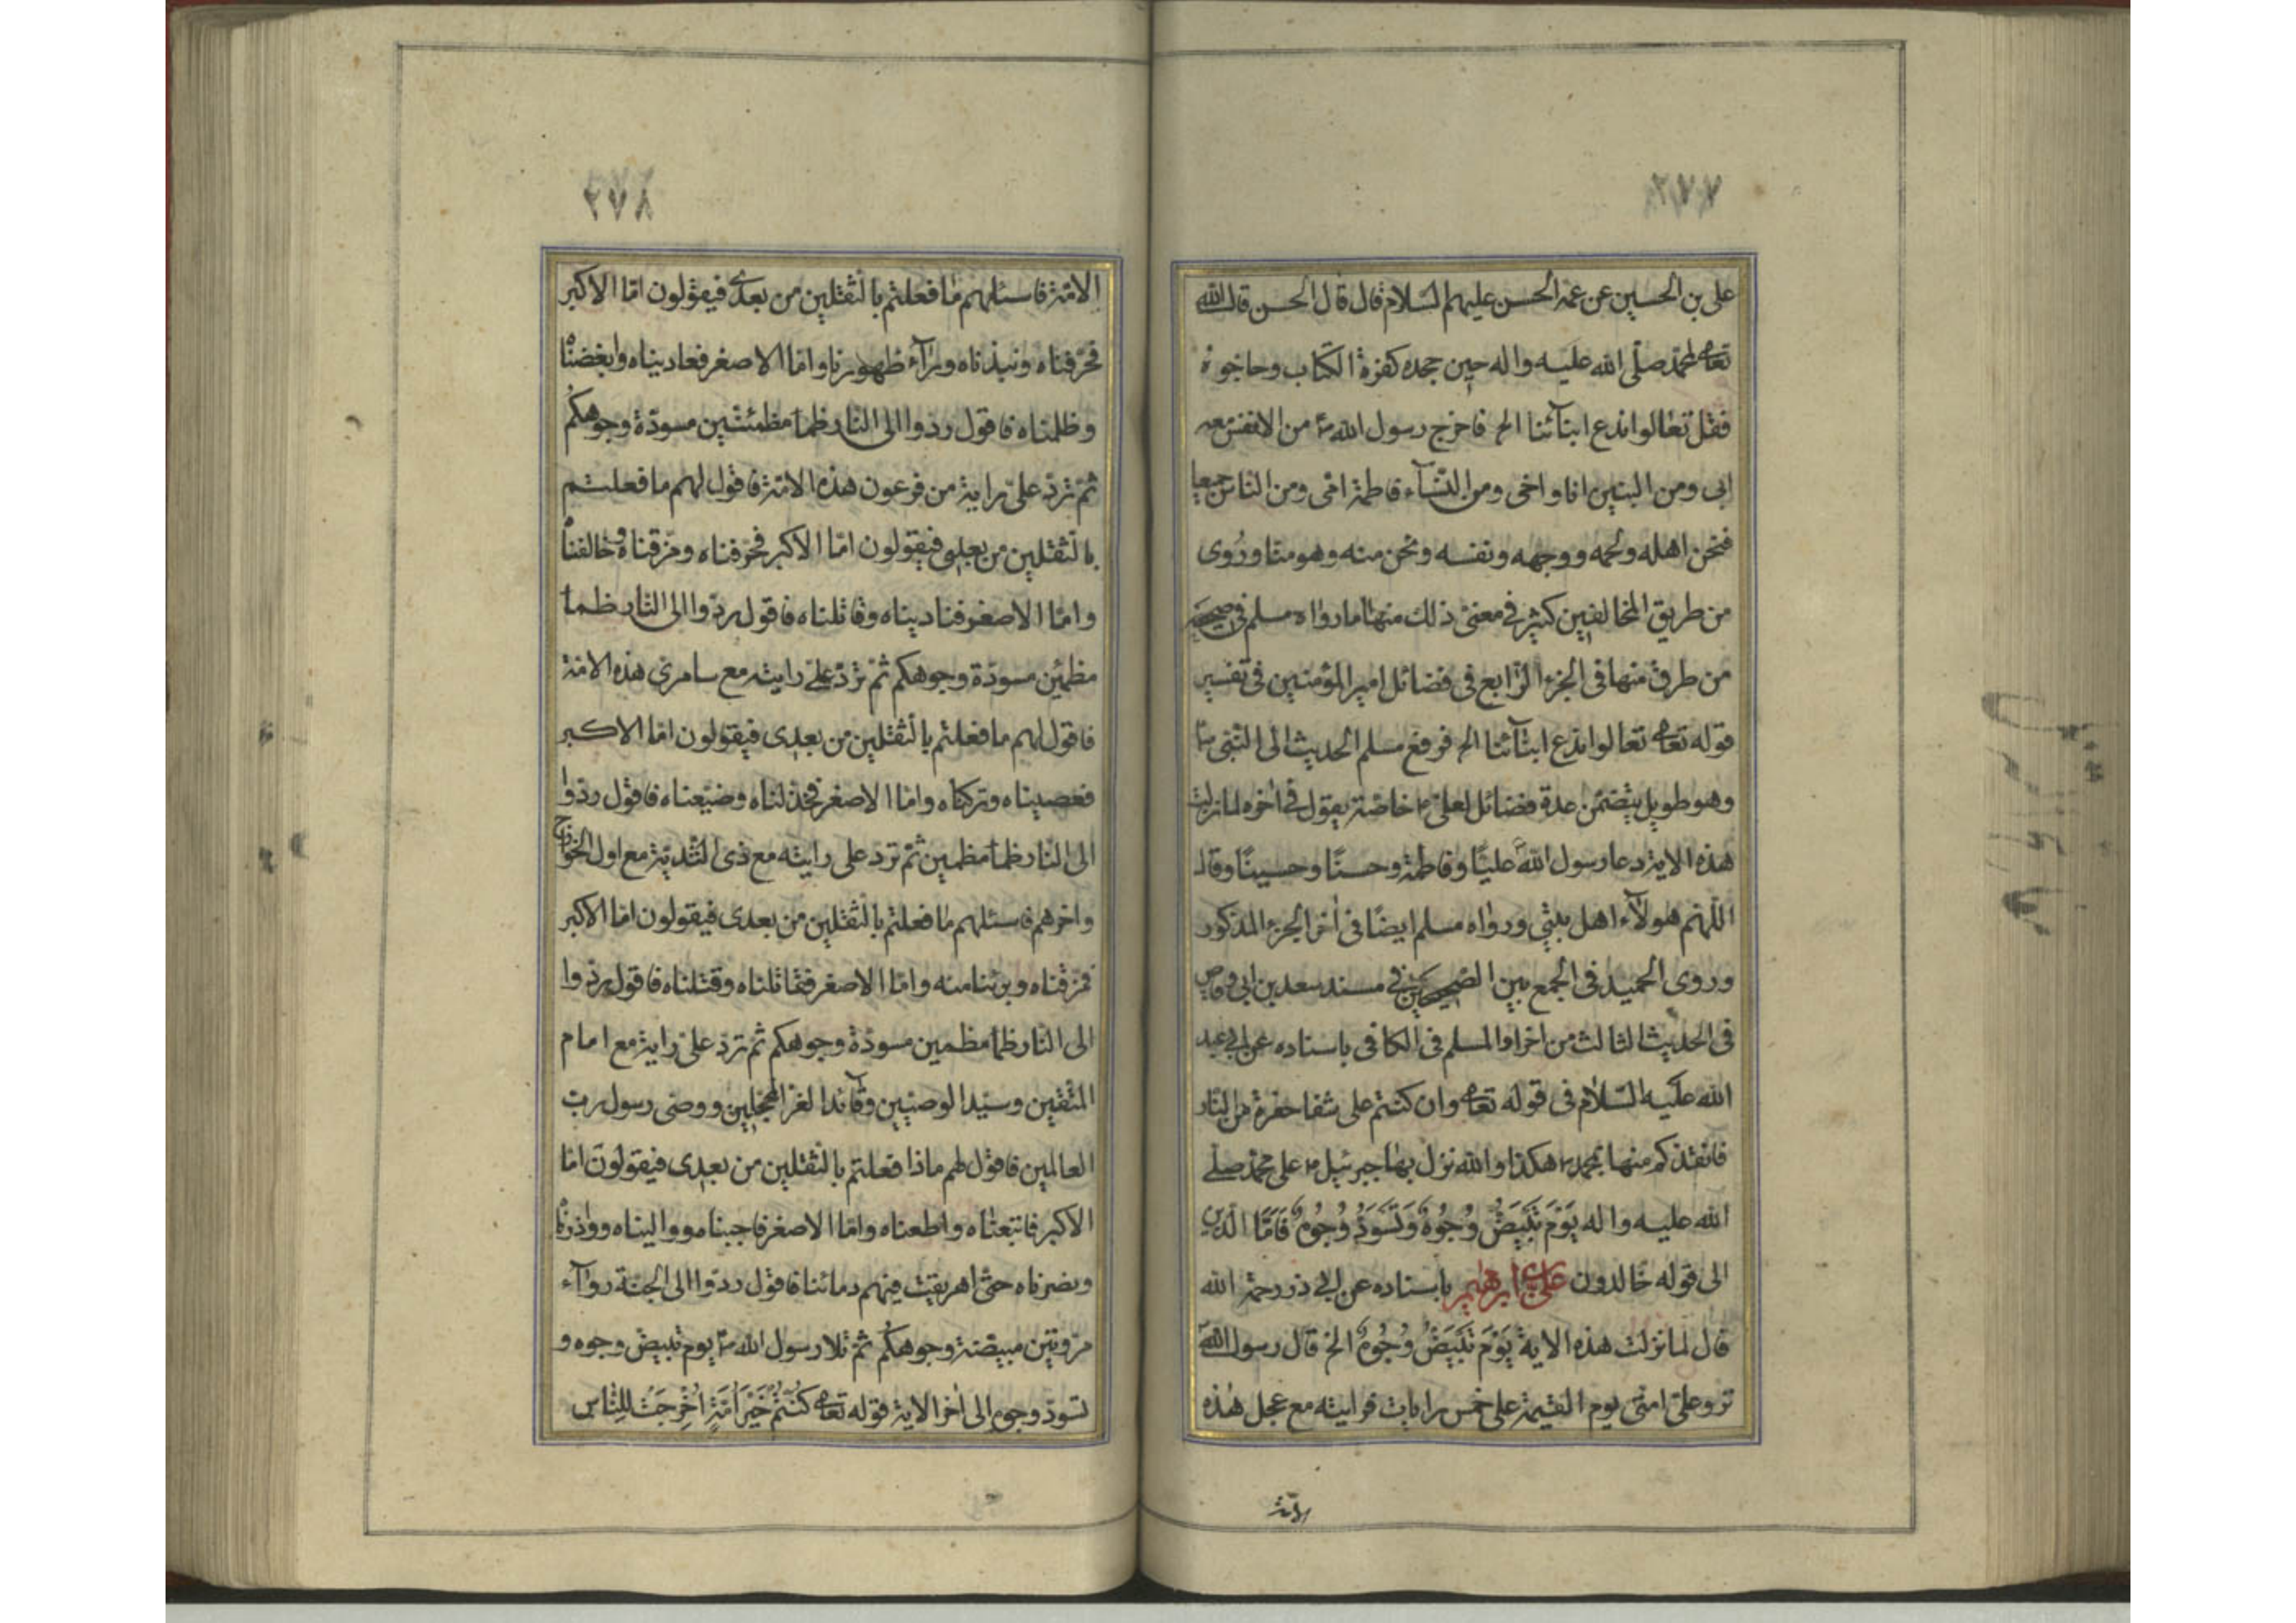 ٢٧٧
علي بن الحسين عن عمه الحسن عليهم السلام قال قال الحسن قال الله
تعالى لمحمد صلّى الله عليه واله حين جحده كفرة الكتاب وحاجوه
فقل تعالوا ندع ابنآئنا الخ فاخرج رسول الله ص من الانفس معه
ابى ومن البنين انا واخى ومن النّسآء فاطمة امّى ومن الناس جميعا
فنحن اهله ولحمه ووجهه ونفسه ونحن منه وهو منا وروى
من طريق المخالفين كثير في معنى ذلك منها ما رواه مسلم في صحيحه
من طرق منها في الجزء الرّابع في فضائل امير المؤمنين في تفسير
قوله تعالى تعالوا ندع ابنآئنا الخ فرفع مسلم الحديث الى النّبى ص
وهو طويل يتضمّن عدة فضائل لعلى ع خاصّة يقول في اخره لما نزلت
هذه الاية دعا رسول الله عليًا وفاطمة وحسنًا وحسينًا وقال
اللّهم هولآء اهل بيتي ورواه مسلم ايضًا فى اخر الجزء المذكور
وروى الحميد فى الجمع بين الصحيحين في مسند سعد بن ابي وقاص
فى الحديث الثالث من افراد المسلم فى الكافى باسناده عن ابي عبد
الله عليه السّلام فى قوله تعالى وان كنتم على شفا حفرة من النار
فانقذكم منها بمحمد هكذا والله نزل بها جبرئيل ع على محمّد صلّى
الله عليه واله يَوْمَ تَبْيَضُّ وُجُوهٌ وَتَسْوَدُّ وُجُوهٌ فَاَمَّا الّذين
الى قوله خالدون علي بن ابرهيم باسناده عن ابي ذر رحمة الله
قال لما نزلت هذه الاية يَوْمَ تَبْيَضُّ وُجُوهٌ الخ قال رسول الله
ترد علىّ امتى يوم القيمة على خمس رايات فراية مع عجل هذه
الامّة
٢٧٨
الامّة فاسئلهم ما فعلتم بالثقلين من بعدي فيقولون امّا الاكبر
فحرّفناه ونبذناه ورآء ظهورنا وامّا الاصغر فعاديناه وابغضناه
وظلمناه فاقول ردّوا الى النار ظمآ مظمئين مسودّة وجوهكم
ثمّ ترد علىّ راية من فرعون هذه الامّة فاقول لهم ما فعلتم
بالثقلين من بعدي فيقولون امّا الاكبر فحرّفناه ومزّقناه وخالفناه
وامّا الاصغر فناديناه وقاتلناه فاقول ردّوا الى النار ظمآ
مظمئين مسودّة وجوهكم ثم ترد علىّ راية مع سامرى هذه الامّة
فاقول لهم ما فعلتم بالثقلين من بعدى فيقولون امّا الاكبر
فعصيناه وتركناه وامّا الاصغر فخذلناه وضيّعناه فاقول ردّوا
الى النار ظمآ مظمئين ثمّ ترد على راية مع ذى الثّدية مع اول الخوارج
واخرهم فاسئلهم ما فعلتم بالثقلين من بعدى فيقولون امّا الاكبر
فمزقناه وبرئنا منه وامّا الاصغر فقاتلناه وقتلناه فاقول ردّوا
الى النار ظمآ مظمئين مسودّة وجوهكم ثم ترد علىّ راية مع امام
المتّقين وسيّد الوصيّين وقآئد الغرّ المحجّلين ووصى رسول رب
العالمين فاقول لهم ماذا فعلتم بالثقلين من بعدى فيقولون امّا
الاكبر فاتبعناه واطعناه وامّا الاصغر فاحببناه وواليناه ووازرناه
ونصرناه حتى اهريقت فيهم دمائنا فاقول ردّوا الى الجنة روآء
مرويّين مبيضّة وجوهكم ثم تلا رسول الله ص يوم تبيض وجوه و
تسودّ وجوه الى اخر الاية قوله تعالى كُنْتُمْ خَيْرَ اُمَّةٍ اُخْرِجَتْ لِلنَّاسِ